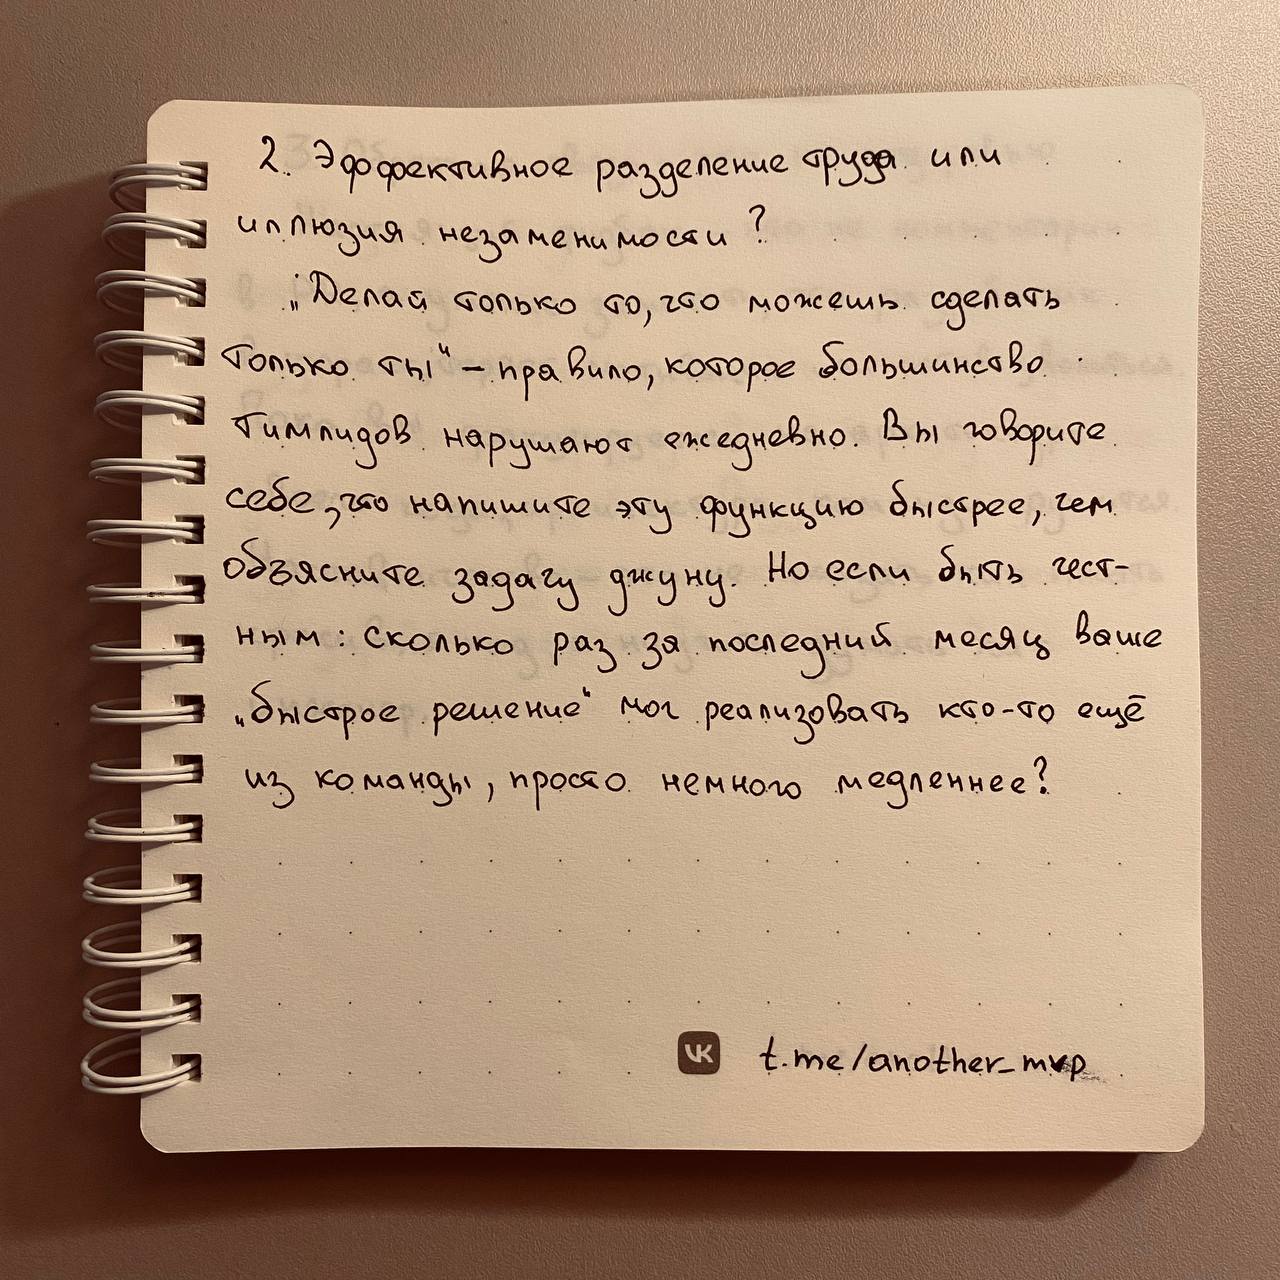 2. Эффективное разделение труда или
иллюзия незаменимости?
„Делай только то, что можешь сделать
только ты“ – правило, которое большинство
тимлидов нарушают ежедневно. Вы говорите
себе, что напишите эту функцию быстрее, чем
объясните задачу джуну. Но если быть чест-
ным: сколько раз за последний месяц ваше
„быстрое решение“ мог реализовать кто-то ещё
из команды, просто немного медленнее?
VK t.me/another_mvp